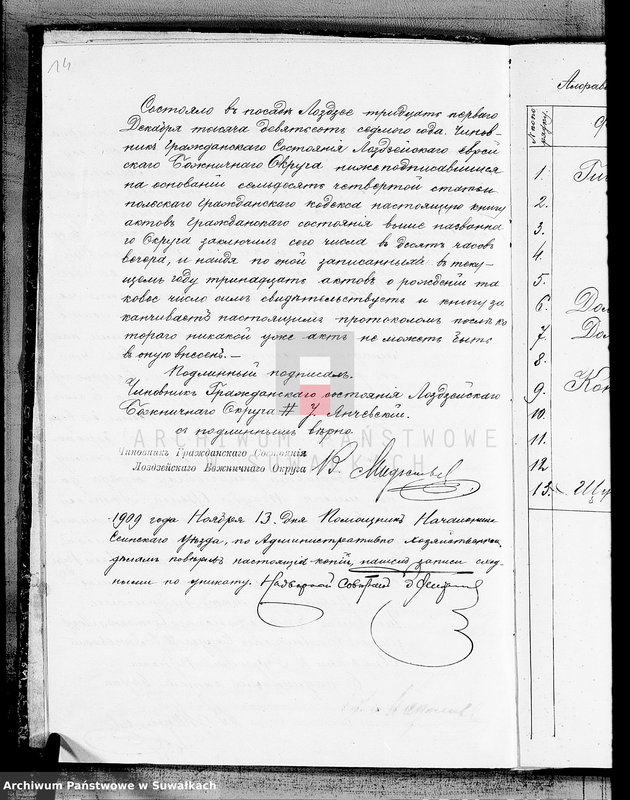 14
Состояло въ посадѣ Лоздзее тридцать перваго
Декабря тысяча девятьсотъ седмого года. Чинов-
никъ Гражданскаго Состоянія Лоздзейскаго еврей
скаго Божничнаго Округа нижеподписавшійся
на основаніи семьдесятъ четвертой статьи
польскаго гражданскаго кодекса настоящую книгу
актовъ гражданскаго состоянія выше названна
го Округа заключилъ сего числа въ десять часовъ
вечера, и найдя по ней записанными въ теку-
щемъ году тринадцать актовъ о рожденіи та
ковое число симъ свидѣтельствуетъ и книгу за
канчиваетъ настоящимъ протоколомъ послѣ ко
тораго никакой уже актъ не можетъ быть
въ оную внесенъ. —
Подлинный подписалъ.
Чиновникъ Гражданскаго состоянія Лоздзейскаго
Божничнаго Округа У. Янчевскій.
съ подлиннымъ вѣрно.
ARCHIWUM PAŃSTWOWE
W SUWAŁKACH
Чиновникъ Гражданскаго Состоянія
Лоздзейскаго Божничнаго Округа
1909 года Ноября 13. дня Помощникъ Начальника
Сейнскаго уѣзда, по Административно хозяйственнымъ
дѣламъ повѣрилъ настоящія копіи, нашелъ записи слѣд-
ными по уникату. Надворный Совѣтникъ
Алфави
№ по по
рядку.
1.
2.
3.
4.
5.
6. Дом
7. До
8.
9. Кон
10.
11.
12
13. Щу
Archiwum Państwowe w Suwałkach